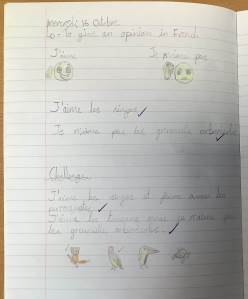 Mercredi 16 Octobre
o - to give an opinion in French
J'aime Je n'aime pas
J'aime les singes
Je n'aime pas les grenouille
Challenge
J'aime les singes et j'aime aussi les
J'aime les toucans mais je n'aime pas
les grenouille